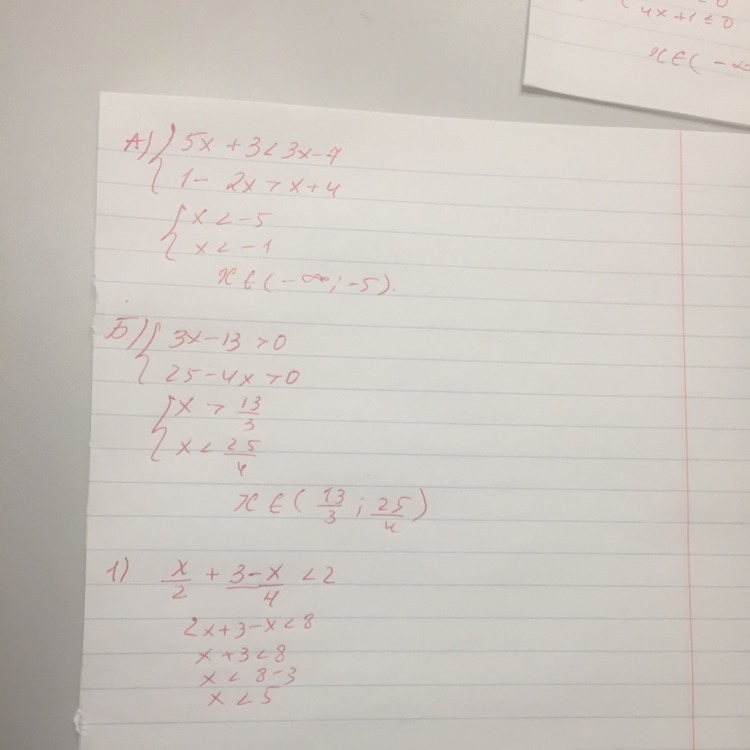 4x+1≤0
x∈(-∞
А) { 5x + 3 < 3x - 7
1 - 2x > x + 4
{ x < -5
x < -1
x ∈ (-∞; -5).
Б) { 3x - 13 > 0
25 - 4x > 0
{ x > 13/3
x < 25/4
x ∈ (13/3 ; 25/4)
1) x/2 + 3-x/4 < 2
2x + 3 - x < 8
x + 3 < 8
x < 8 - 3
x < 5